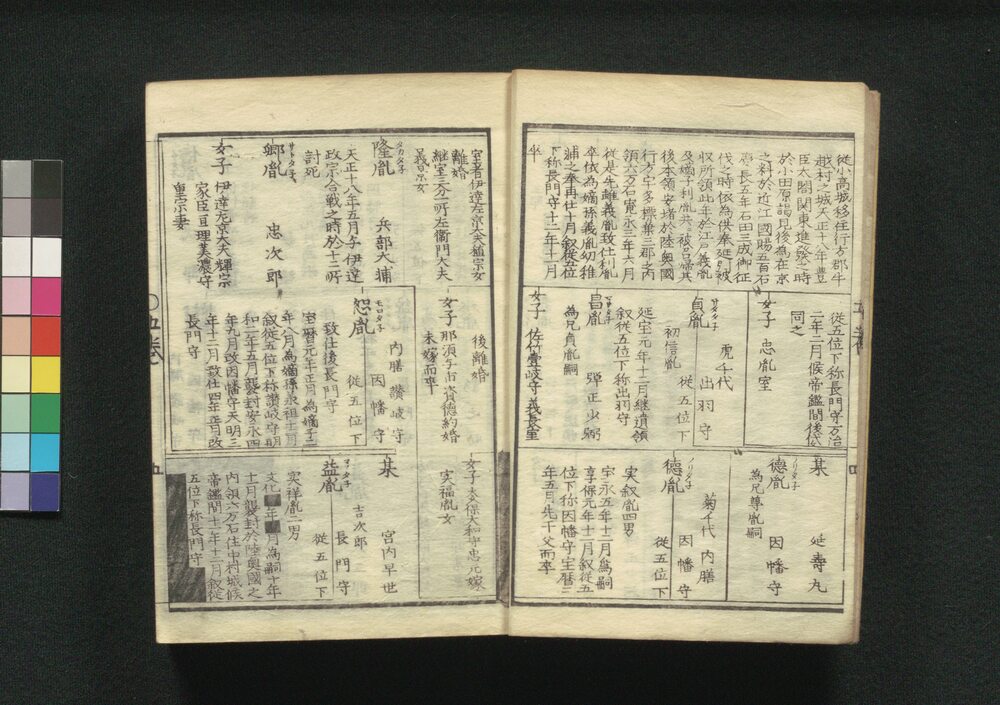 従小高城移住行方郡牛
越村之城天正十八年豊
臣太閤関東進発之時
於小田原謁見後為在京
之料於近江國賜五百石
慶長五年石田三成御征
伐之時依為佐竹延引被
収所領此年於江戸義胤
及嫡子利胤共被召帰其
後本領安堵於陸奥國
行方宇多標葉三郡之内
領六万石寛永三年六月
従是先雖義胤致仕利胤
卒依為嫡孫義胤幼稚
浦之奉再仕十月叙従五位
下称長門守十二年十一月
卒
従五位下称長門守万治
二年二月候帝鑑間後依
同之
女子 忠胤室
サダタ子
貞胤 虎千代
出羽守
初信胤 従五位下
延宝元年十二月継遺領
叙従五位下称出羽守
マサタ子
昌胤 弾正少弼
為兄貞胤嗣
女子 佐竹壹岐守義長室
某 延壽丸
ノリタ子
徳胤 因幡守
為兄尊胤嗣
ノリタ子
徳胤 菊千代 内膳
因幡守
従五位下
実叙胤四男
宗永五年十二月為嗣
享保元年十二月叙従五
位下称因幡守宝暦二
年五月先于父而卒
室者伊達左京大夫植宗女
離婚
継室三分一所左衛門大夫
義景女
タカタ子
隆胤 兵部大輔
天正十八年五月与伊達
政宗合戦之時於十二所
討死
サトタ子
郷胤 忠次郎
女子 伊達左京大夫輝宗
家臣亘理美濃守
重宗妻
後離婚
女子 那須与市資徳約婚
未嫁而卒
モロタ子
恕胤 内膳 讃岐守
因幡守
従五位下
致仕後長門守
宝暦元年正月為嫡子二
年八月為嫡孫承祖十二月
叙従五位下称讃岐守明
和二年五月襲封安永四
年九月改因幡守天明三
年十二月致仕四年正月改
長門守
女子 大久保大和守忠元嫁
実福胤女
某 宮内早世
マスタ子
益胤 吉次郎
長門守
従五位下
実祥胤二男
文化年月為嗣十年
十一月襲封於陸奥國之
内領六万石住中村城候
帝鑑間十一年十二月叙従
五位下称長門守
〇五巻
五